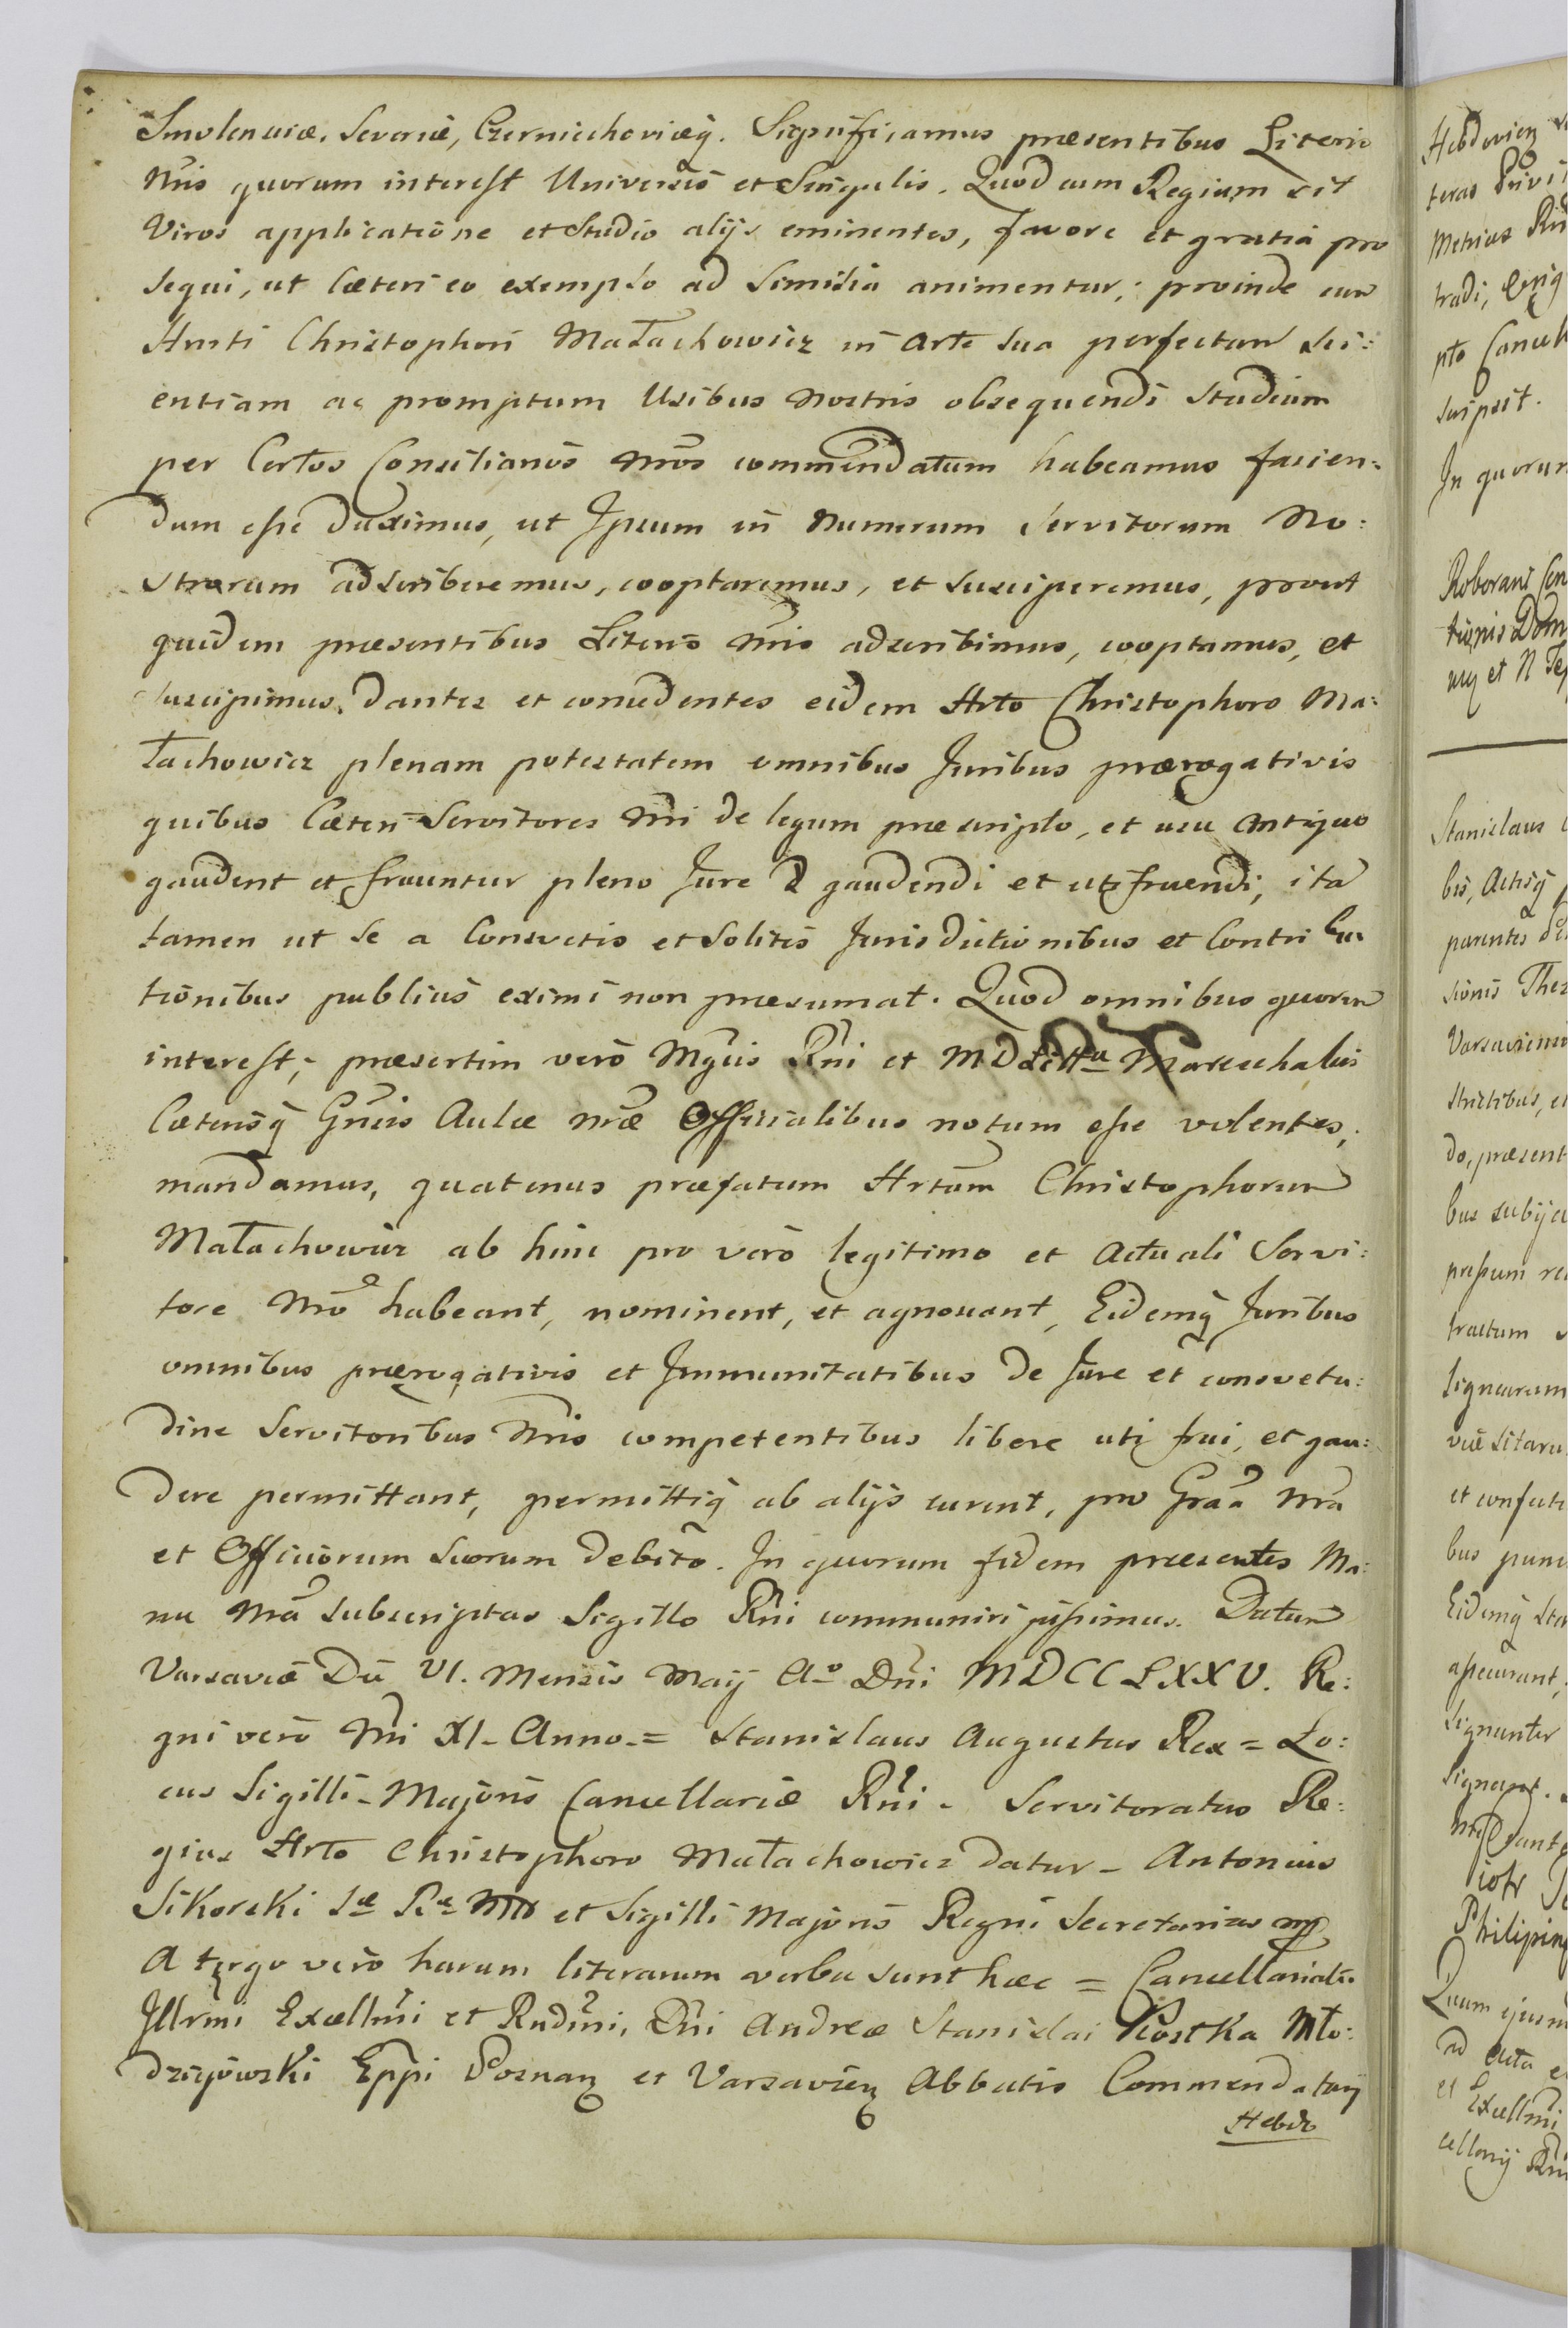 Smolensciæ, Severiæ, Czerniechoviæq. Significamus præsentibus Literis
Nris quorum interest Universis et Singulis. Quod cum Regium sit
Viros applicatione et Studio alijs eminentes, favore et gratia pro
sequi, ut Cæteri eo exemplo ad similia animentur; proinde cum
Hnsti Christophori Małachowicz in Arte sua perfectam sci:
entiam ac promptum Usibus Nostris obsequendi Studium
per Certos Consiliarios Nros commendatum habeamus facien:
dum esse duximus, ut Ipsum in Numerum Servitorum No:
strorum adscriberemus, cooptaremus, et susciperemus, prout
quidem præsentibus Literis Nris adscribimus, cooptamus, et
suscipimus. Dantes et concedentes eidem Hrto Christophoro Ma:
łachowicz plenam potestatem omnibus Juribus prærogativis
quibus Cæteri Servitores Nri de legum præscripto, et usu Antiquo
gaudent et fruuntur pleno Jure gaudendi et utifruendi, ita
tamen ut se a Consvetis et Solitis Jurisdictionibus et Contribu
tionibus publicis eximi non præsumat. Quod omnibus quorum
interest; præsertim verò Mgcis Rni et MD Litta Mareschalis
Cæterisq Gnris Aulæ Nræ Officialibus notum esse volentes,
mandamus, quatenus præfatum Hrtum Christophorum
Małachowicz ab hinc pro vero legitimo et Actuali Servi:
tore Nro habeant, nominent, et agnoscant, Eidemq Juribus
omnibus prærogativis et Immunitatibus de Jure et consvetu:
dine Servitoribus Nris competentibus libere uti frui, et gau:
dere permittant, permittiq ab alijs curent, pro Graa Nra
et Officiorum suorum debito. In quorum fidem præsentes Ma:
nu Nra subscriptas Sigillo Rni communiri jussimus. Datum
Varsaviæ Die VI. Mensis Maij Ao Dni MDCCLXXV. Re:
gni vero Nri XI. Anno = Stanislaus Augustus Rex = Lo:
cus Sigilli - Majoris Cancellariæ Rni - Servitoratus Re:
gius Hrto Christophoro Małachowicz datur - Antonius
Sikorski Sæ Ræ Mtts et Sigilli Majoris Regni Secretarius mp
A tergo vero harum literarum verba sunt hæc = Cancellariatu
Illrmi Excellmi et Rndmi, Dni Andreæ Stanislai Kostka Mło:
dziejowski Eppi Posnan et Varsavien Abbatis Commendatarij
Hebdo
Hebdovien
teras Privi
Metrices
tradi,
pto Cancell
suipsit.
In quorum
Roborari
tionis Dom
Stanislaus
bis, Actisq
parentes
sionis
Varsavien
strictibus, et
do, præsent
bus subijci
pressum
tractum
lignearum
viæ sitaru
et confecti
bus
Eidemq Sta
assecurant,
signanter
Philipin
Quum ejusm
ad Acta
et Excellmi
cellarij Rni